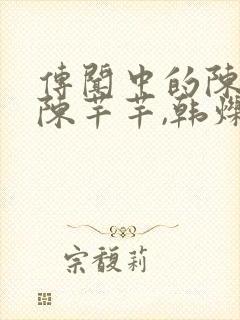 傳聞中的陳
陳芊芊,韩燦
宗馥莉